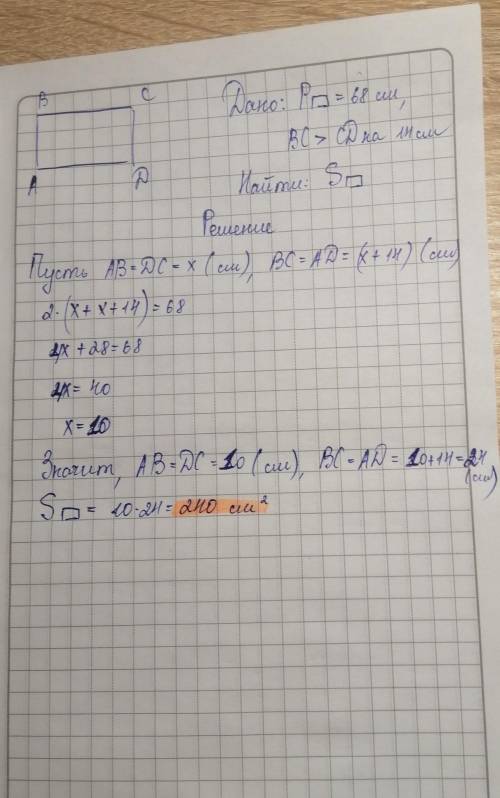 B C
Дано: P▭ = 68 см,
BC > CD на 14 см
A D
Найти: S▭
Решение
Пусть AB = DC = x (см), BC = AD = (x + 14) (см)
2·(x + x + 14) = 68
4x + 28 = 68
4x = 40
x = 10
Значит, AB = DC = 10 (см), BC = AD = 10 + 14 = 24 (см)
S▭ = 10·24 = 240 см²